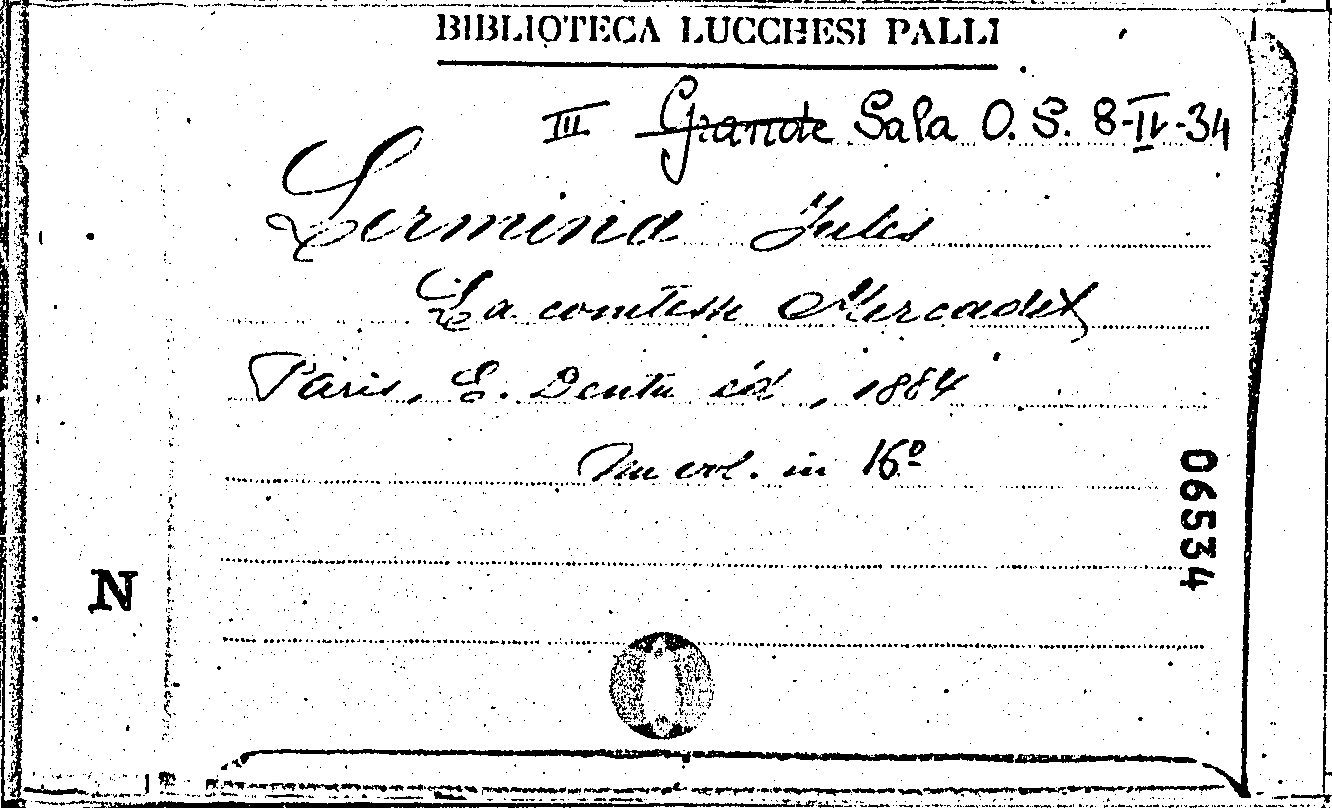 BIBLIOTECA LUCCHESI PALLI
III Grande Sala O. S. 8-IV-34
Lermina Jules
La comtesse Mercadet
Paris, E. Dentu éd, 1884
Un vol. in 16º
06534
N